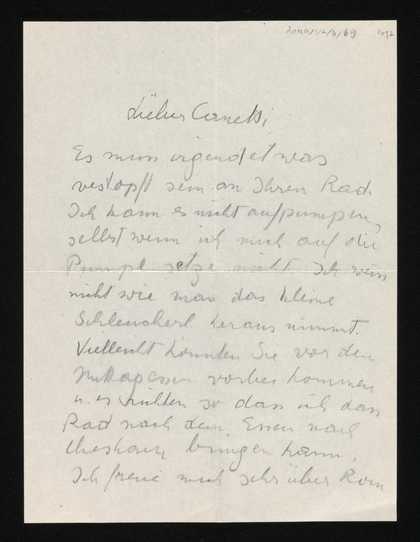 Lieber Canetti,
Es muss irgend etwas
verstopft sein an Ihren Rad
Ich kann es nicht aufpumpen,
selbst wenn ich mich auf die
Pumpe setze nicht. Ich weiss
nicht wie man das kleine
Schlaucherl heraus nimmt.
Vielleicht könnten Sie vor dem
Mittagessen vorbei kommen
u. es richten so dass ich das
Rad nach dem Essen nach
Chesham bringen kann.
Ich freue mich sehr über Rom